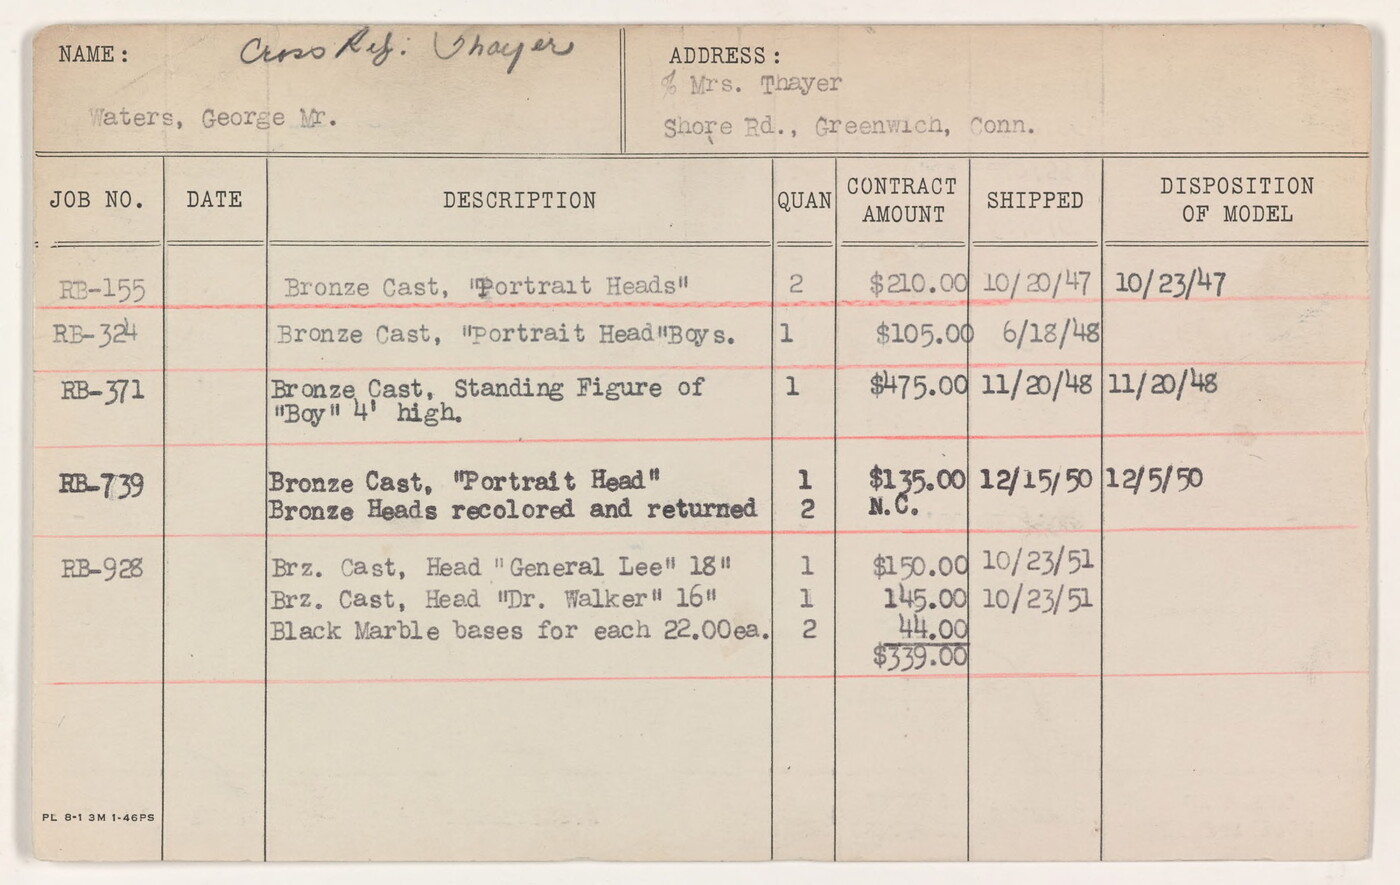 NAME: Cross Ref: Thayer
Waters, George Mr.
ADDRESS:
℅ Mrs. Thayer
Shore Rd., Greenwich, Conn.
JOB NO. DATE DESCRIPTION QUAN CONTRACT AMOUNT SHIPPED DISPOSITION OF MODEL
RB-155 Bronze Cast, "Portrait Heads" 2 $210.00 10/20/47 10/23/47
RB-324 Bronze Cast, "Portrait Head"Boys. 1 $105.00 6/18/48
RB-371 Bronze Cast, Standing Figure of 1 $475.00 11/20/48 11/20/48
"Boy" 4' high.
RB-739 Bronze Cast, "Portrait Head" 1 $135.00 12/15/50 12/5/50
Bronze Heads recolored and returned 2 N.C.
RB-928 Brz. Cast, Head "General Lee" 18" 1 $150.00 10/23/51
Brz. Cast, Head "Dr. Walker" 16" 1 145.00 10/23/51
Black Marble bases for each 22.00ea. 2 44.00
$339.00
PL 8-1 3M 1-46PS